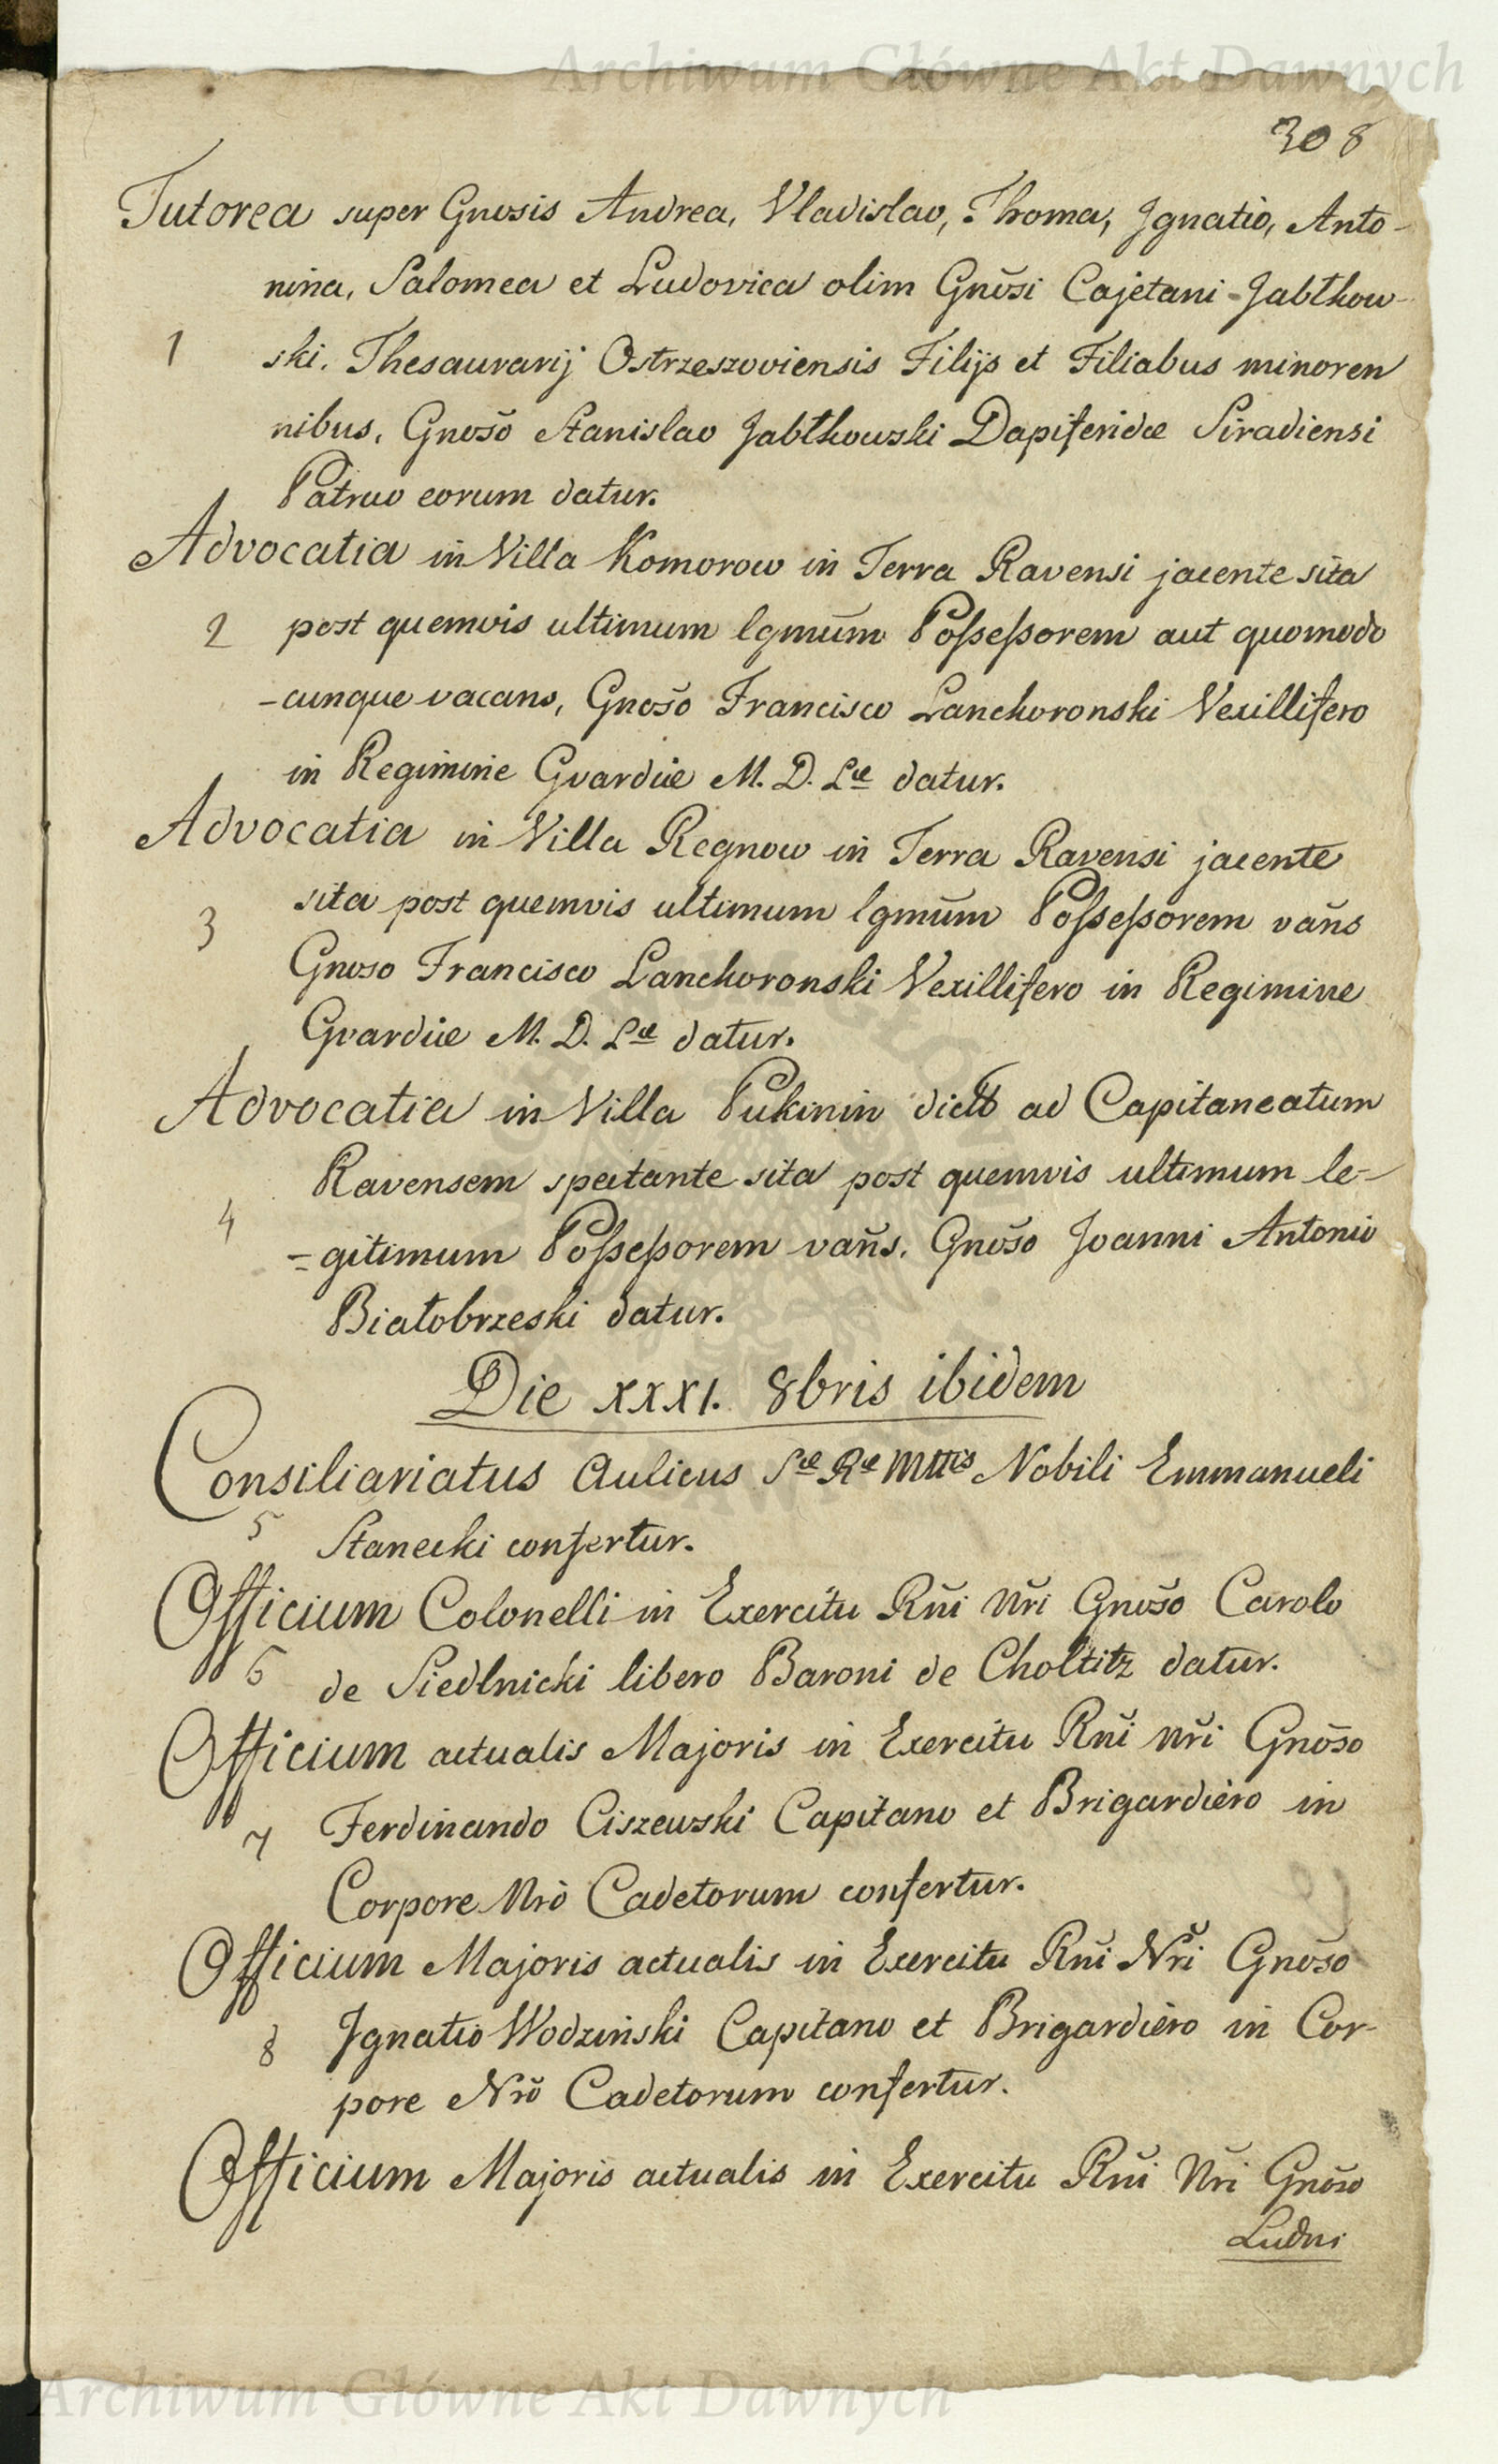 Archiwum Główne Akt Dawnych
308
Tutorea super Gnosis Andrea, Vladislao, Thoma, Ignatio, Anto-
nina, Salomea et Ludovica olim Gnõsi Cajetani Jabłkow-
1 ski. Thesaurarij Ostrzeszoviensis Filijs et Filiabus minoren
nibus, Gnosõ Stanislao Jabłkowski Dapiferidæ Siradiensi
Patruo eorum datur.
Advocatia in Villa Komorow in Terra Ravensi jacente sita
2 post quemvis ultimum lgmũm Possessorem aut quomodo
-cunque vacans, Gnosõ Francisco Lanckoronski Vexillifero
in Regimine Gvardiæ M. D. Læ datur.
Advocatia in Villa Regnow in Terra Ravensi jacente
3 sita post quemvis ultimum lgmũm Possessorem vañs
Gnoso Francisco Lanckoronski Vexillifero in Regimine
Gvardiæ M. D. Læ datur.
Advocatia in Villa Pukinin ad Capitaneatum
Ravensem spectante sita post quemvis ultimum le-
4 =gitimum Possessorem vañs. Gnõso Joanni Antonio
Białobrzeski datur.
Die XXXI. 8bris ibidem
Consiliariatus Aulicus Sæ Ræ Mttis Nobili Emmanueli
5 Stanecki confertur.
Officium Colonelli in Exercitu Rñi Nři Gnõso Carolo
6 de Siedlnicki libero Baroni de Choltitz datur.
Officium actualis Majoris in Exercitu Rñi Nři Gnõso
7 Ferdinando Ciszewski Capitano et Brigardiero in
Corpore Nrõ Cadetorum confertur.
Officium Majoris actualis in Exercitu Rñi Nři Gnõso
8 Ignatio Wodziński Capitano et Brigardiero in Cor-
pore Nrõ Cadetorum confertur.
Officium Majoris actualis in Exercitu Rñi Nři Gnõso
Ludni
Archiwum Główne Akt Dawnych